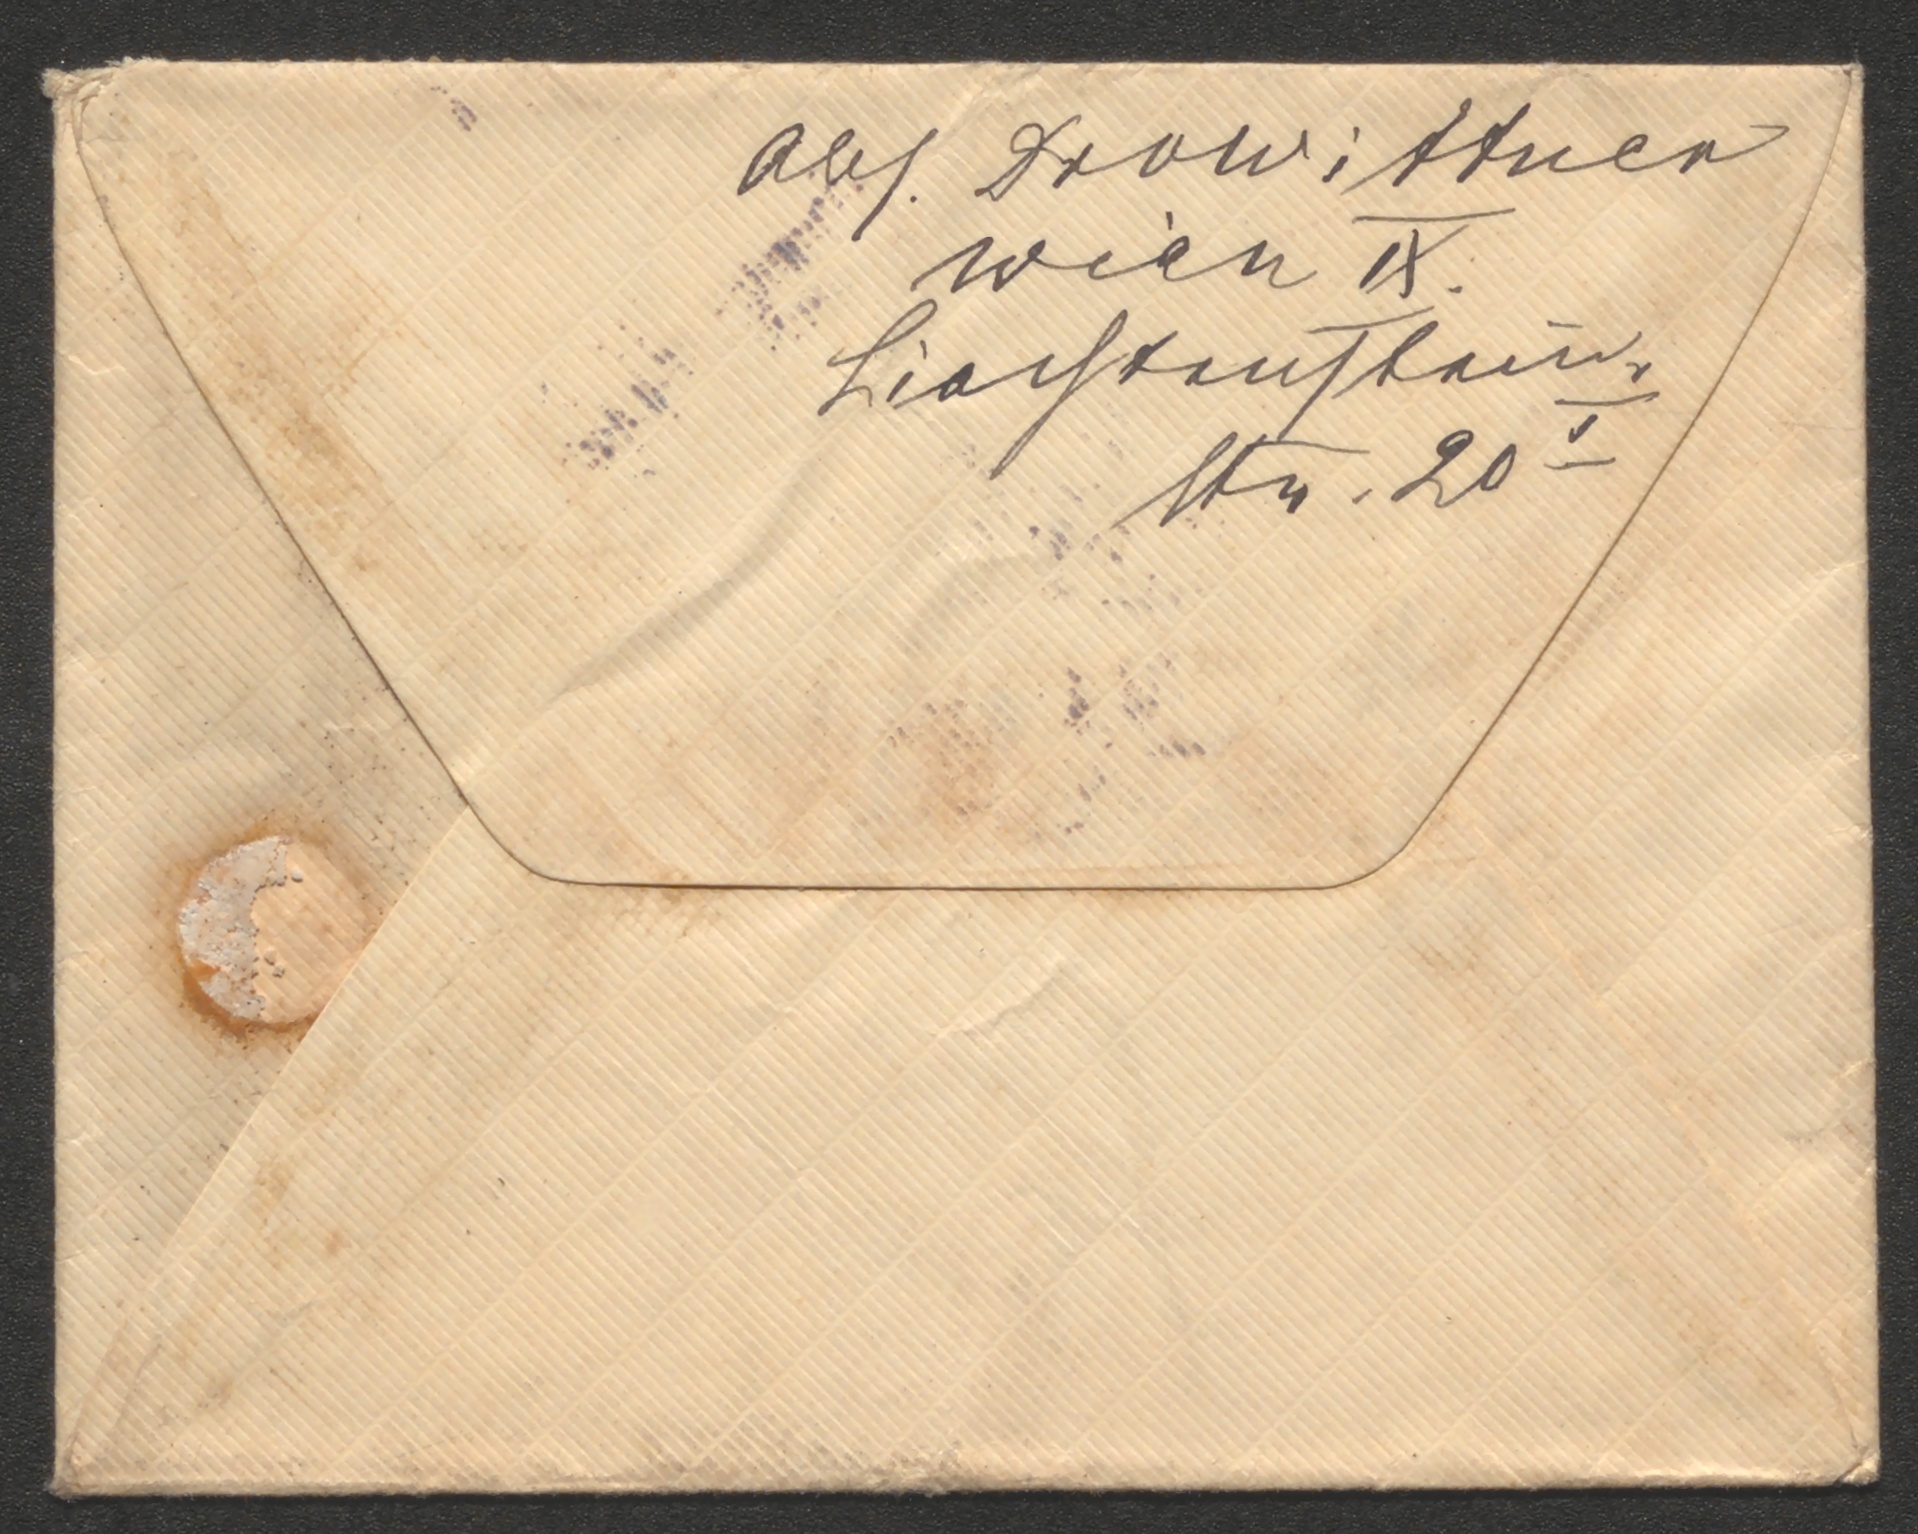 Abs. Drowittner
Wien IX.
Liechtenstein-
str. 20 I